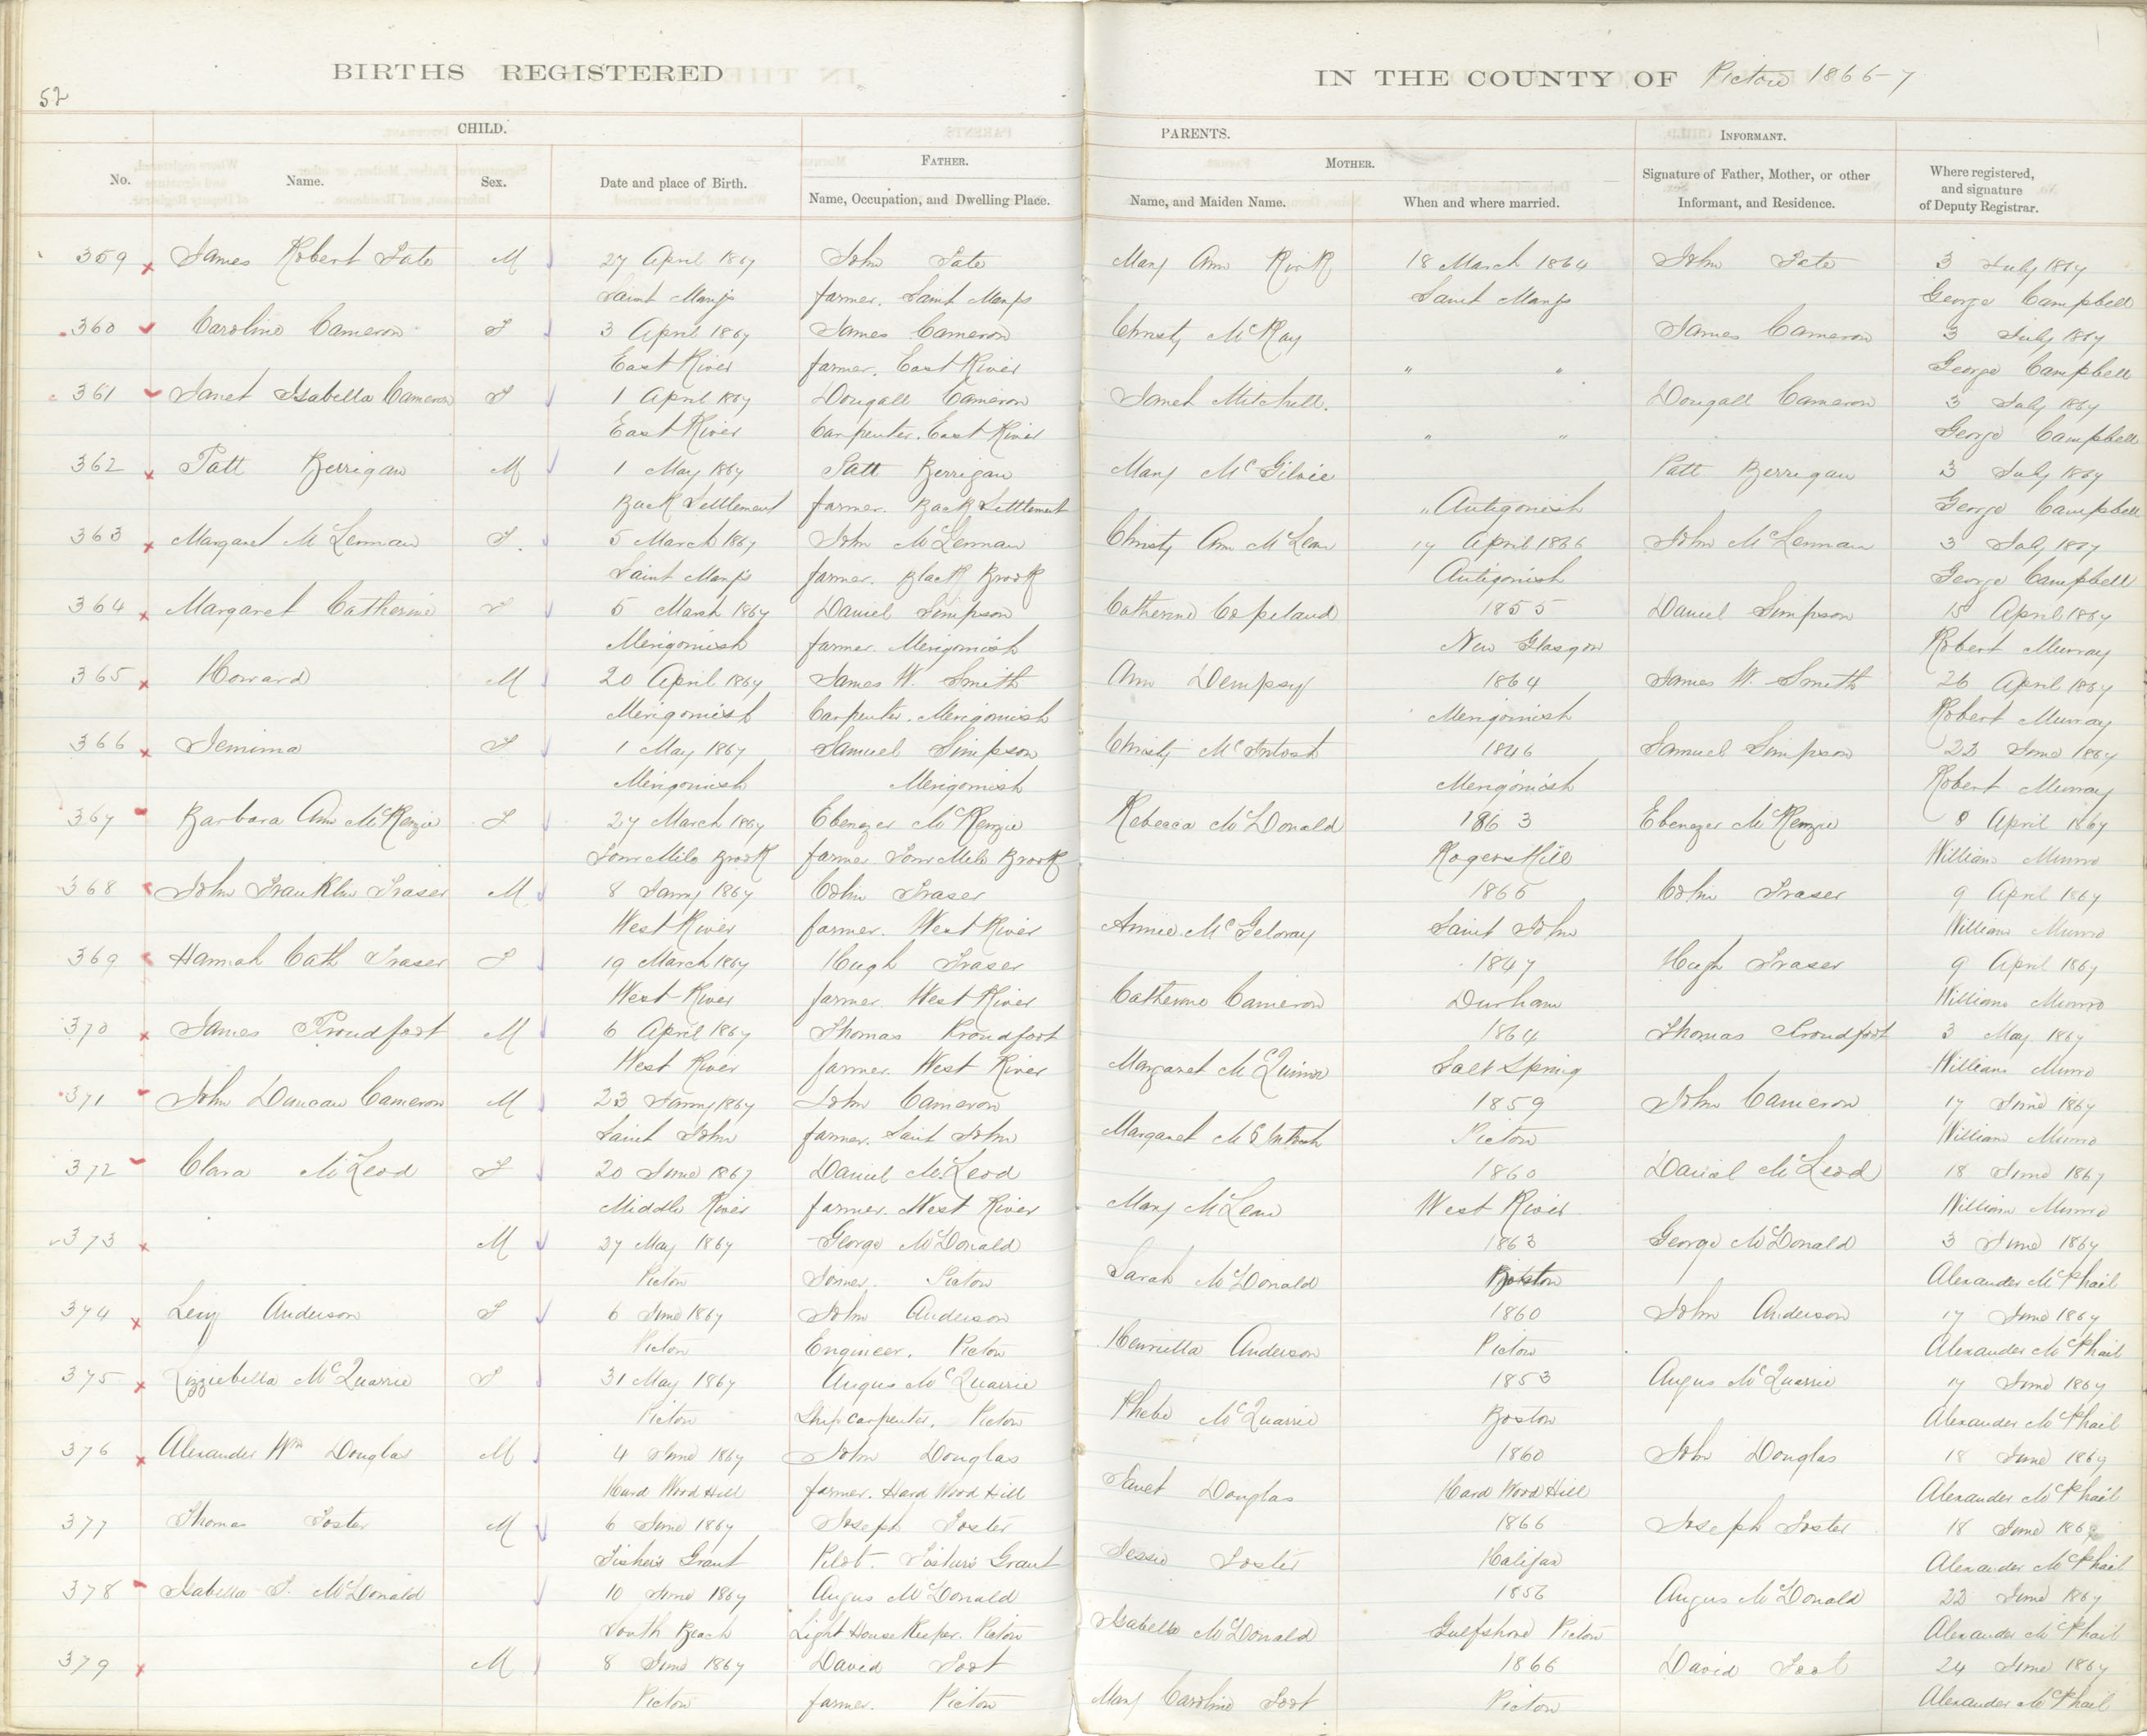 52
BIRTHS REGISTERED IN THE COUNTY OF Pictou 1866-7
CHILD. PARENTS. INFORMANT.
FATHER. MOTHER.
No. Name. Sex. Date and place of Birth. Name, Occupation, and Dwelling Place. Name, and Maiden Name. When and where married. Signature of Father, Mother, or other Informant, and Residence. Where registered, and signature of Deputy Registrar.
359 James Robert Tate M 27 April 1867 John Tate Mary Ann Kirk 18 March 1864 John Tate 3 July 1867
Saint Marys farmer. Saint Marys Saint Marys George Campbell
360 Caroline Cameron F 3 April 1867 James Cameron Christy McKay James Cameron 3 July 1867
East River farmer. East River " " George Campbell
361 Janet Isabella Cameron F 1 April 1867 Dougall Cameron Janet Mitchell. Dougall Cameron 3 July 1867
East River Carpenter. East River " " George Campbell
362 Patt Berrigan M 1 May 1867 Patt Berrigan Mary McGilvie Patt Berrigan 3 July 1867
Back Settlement farmer. Back Settlement " Antigonish George Campbell
363 Margaret McLennan F. 5 March 1867 John McLennan Christy Ann McLean 17 April 1866 John McLennan 3 July 1867
Saint Marys farmer. Black Brook Antigonish George Campbell
364 Margaret Catherine F 5 March 1867 Daniel Simpson Catherine Copeland 1855 Daniel Simpson 15 April 1867
Merigomish farmer. Merigomish New Glasgow Robert Murray
365 Howard M 20 April 1867 James W. Smith Ann Dempsy 1864 James W. Smith 26 April 1867
Merigomish Carpenter. Merigomish Merigomish Robert Murray
366 Jemima F 1 May 1867 Samuel Simpson Christy McIntosh 1846 Samuel Simpson 23 June 1867
Merigomish Merigomish Merigomish Robert Murray
367 Barbara Ann McKenzie F 27 March 1867 Ebenezer McKenzie Rebecca McDonald 1863 Ebenezer McKenzie 8 April 1867
Four Mile Brook farmer Four Mile Brook Rogers Hill William Munro
368 John Franklin Fraser M 8 Janry 1867 Colin Fraser 1865 Colin Fraser 9 April 1867
West River farmer. West River Annie McGelvray Saint John William Munro
369 Hannah Cath Fraser F 19 March 1867 Hugh Fraser 1847 Hugh Fraser 9 April 1867
West River farmer. West River Catherine Cameron Durham William Munro
370 James Proudfoot M 6 April 1867 Thomas Proudfoot 1864 Thomas Proudfoot 3 May 1867
West River farmer. West River Margaret McQuinn Salt Spring William Munro
371 John Duncan Cameron M 23 Janry 1867 John Cameron 1859 John Cameron 17 June 1867
Saint John farmer. Saint John Margaret McIntosh Pictou William Munro
372 Clara McLeod F 20 June 1867 Daniel McLeod 1860 Daniel McLeod 18 June 1867
Middle River farmer. West River Mary McLean West River William Munro
373 M 27 May 1867 George McDonald 1863 George McDonald 3 June 1867
Pictou Joiner. Pictou Sarah McDonald Boston Alexander McPhail
374 Levy Anderson F 6 June 1867 John Anderson 1860 John Anderson 17 June 1867
Pictou Engineer. Pictou Henrietta Anderson Pictou Alexander McPhail
375 Lizziebella McQuarrie F 31 May 1867 Angus McQuarrie 1853 Angus McQuarrie 17 June 1867
Pictou Ship carpenter. Pictou Phebe McQuarrie Boston Alexander McPhail
376 Alexander Wm Douglas M 4 June 1867 John Douglas 1860 John Douglas 18 June 1867
Hard Wood Hill farmer. Hard Wood Hill Janet Douglas Hard Wood Hill Alexander McPhail
377 Thomas Foster M 6 June 1867 Joseph Foster 1866 Joseph Foster 18 June 1867
Fishers Grant Pilot. Fishers Grant Jessie Foster Halifax Alexander McPhail
378 Isabella J. McDonald 10 June 1867 Angus McDonald 1856 Angus McDonald 22 June 1867
South Beach Light House Keeper. Pictou Isabella McDonald Gulfshore Pictou Alexander McPhail
379 M 8 June 1867 David Foot 1866 David Foot 24 June 1867
Pictou farmer. Pictou Mary Caroline Foot Pictou Alexander McPhail